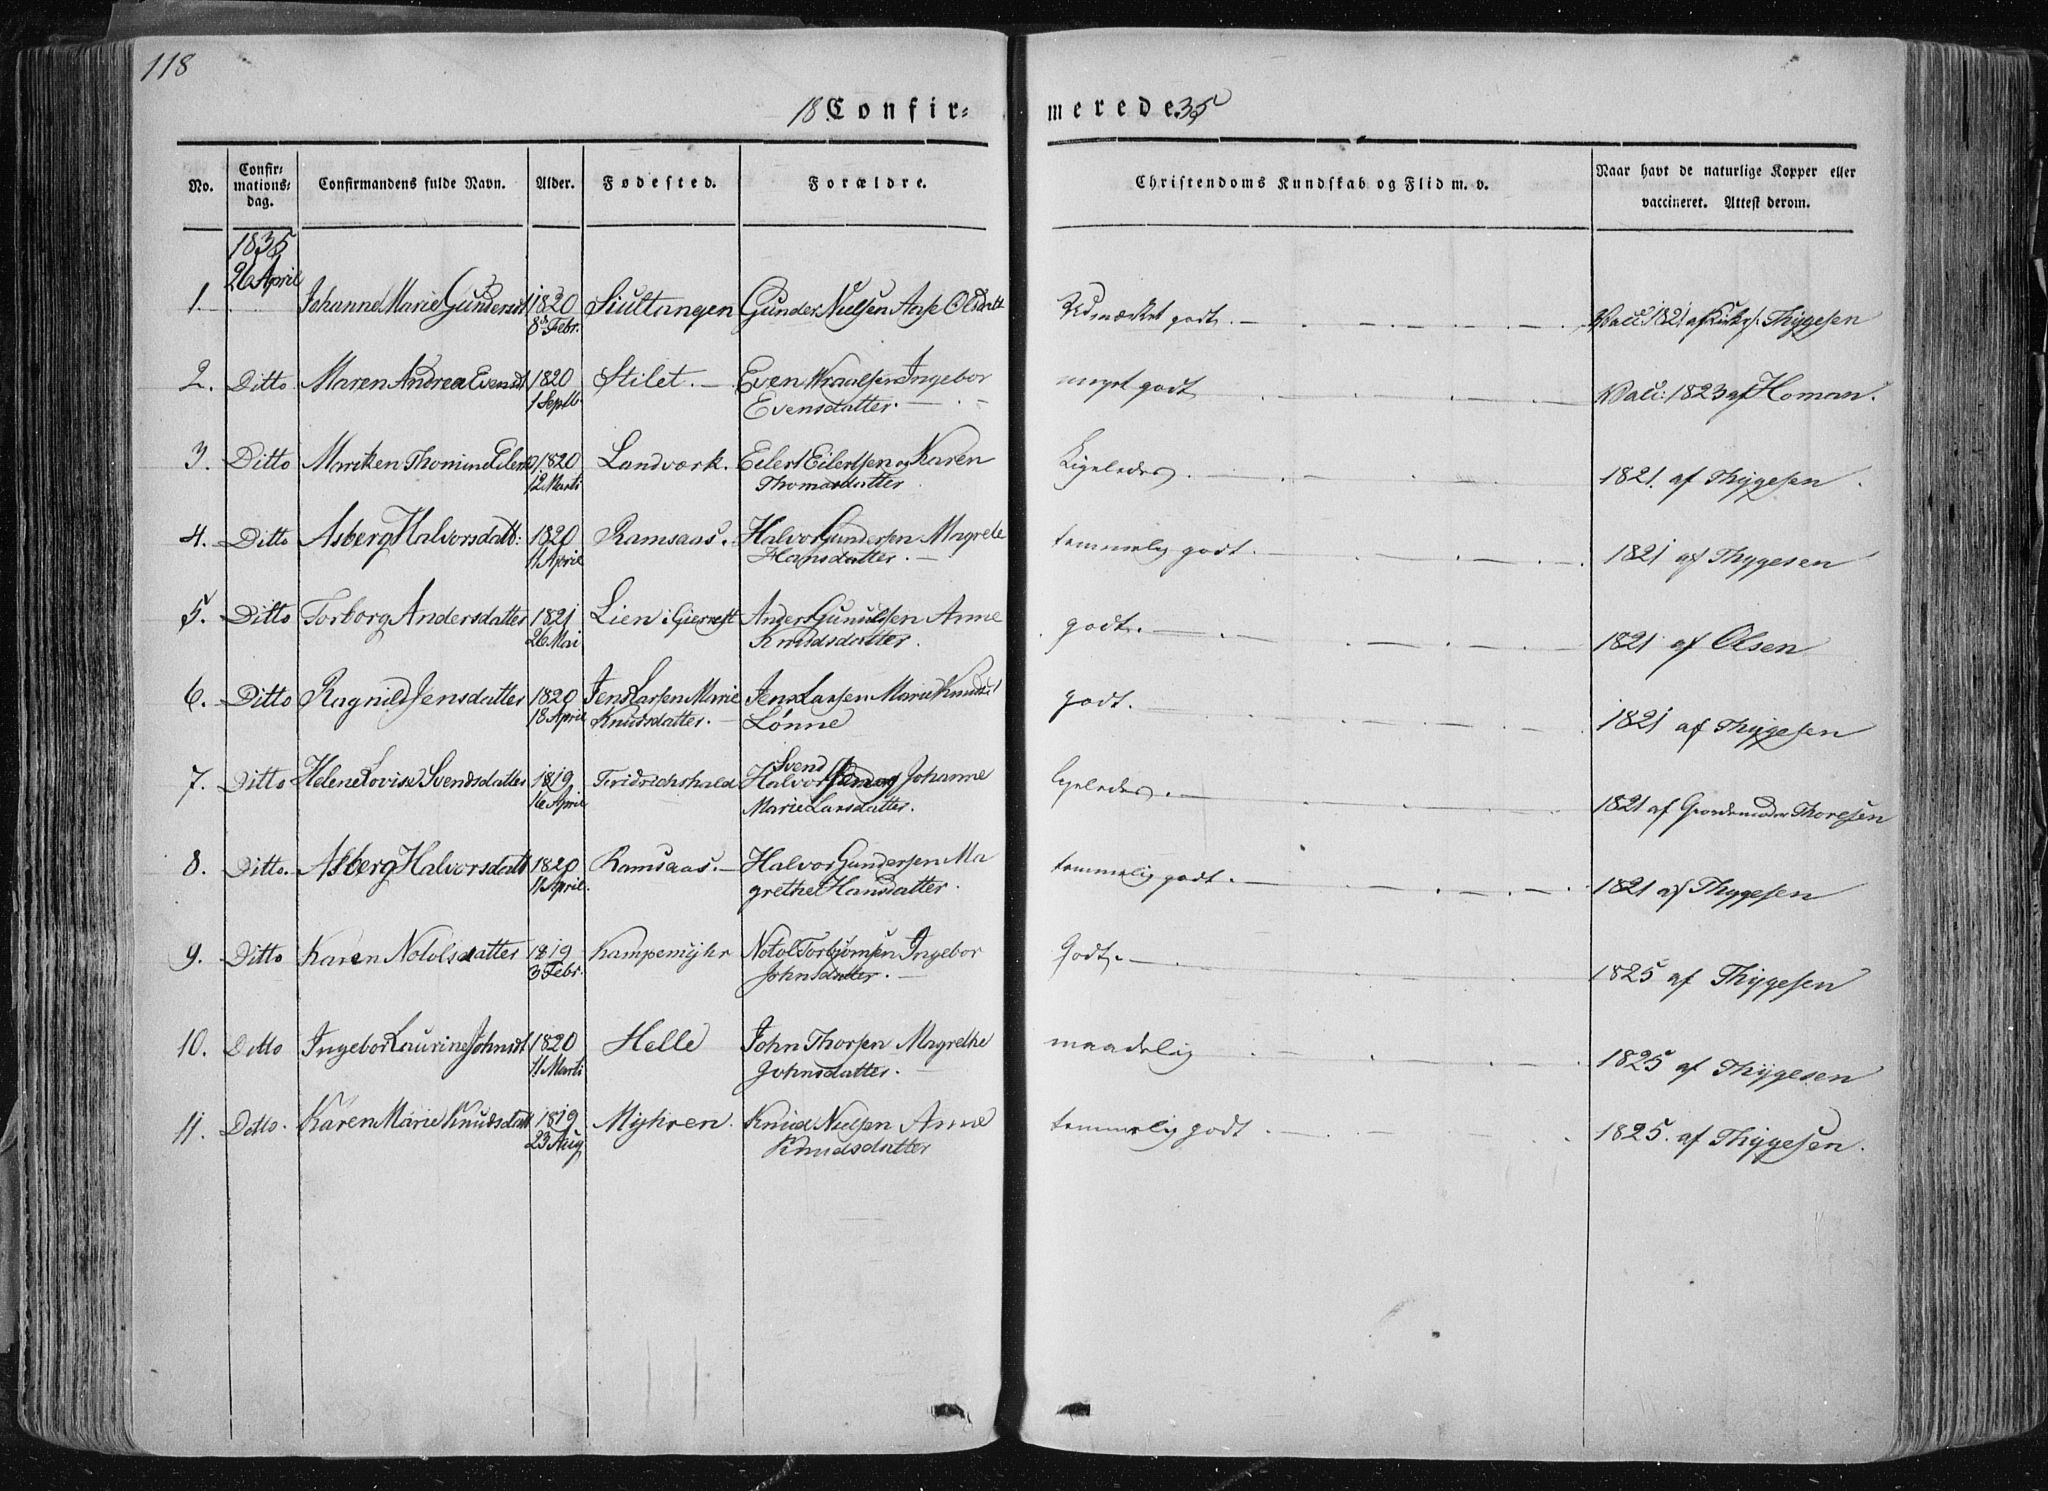 118
18 Confir= merede 35
No. Confir= mations= dag. Confirmandens fulde Navn. Alder. Fødested. Forældre. Christendoms Kundskab og Flid m. v. Naar havt de naturlige Kopper eller vaccineret. Attest derom.
1835
26 April
1. Johanne Marie Gundersdt 1820 Siultangen Gunder Nielsen Aase Olsdatt Udmærket godt. Vacc: 1821 af Thygesen
8de Febr.
2. Ditto Maren Andrea Evensdt 1820 Stilet. Even Ingebor meget godt Vacc: 1823 af Homan.
1 Septb. Evensdatter.
3. Ditto Mariken Thomine Eilert 1820 Landværk. Eilert Eilertsen og Karen Ligeledes. 1821. af Thygesen.
12 Marti Thomasdatter
4. Ditto Asberg Halvorsdatt: 1820 Ramsaas. Halvor Gundersen Magrete temmelig godt. 1821 af Thygesen
11 April Hansdatter.
5. Ditto Torborg Andersdatter 1821 Lien i Anders Gunulfsen Anne godt. 1821 af Olsen
26 Mai Knudsdatter.
6. Ditto Ragnild Jensdatter 1820 Jens Larsen Marie Jens Larsen Marie Knudsd godt. 1821 af Thygesen
18 April Knudsdatter. Lønne
7. Ditto Helene Lovise Svendsdatter 1819 Fridrichshald Svend Halvorsen og Johanne ligeledes. 1821 af Giordemoder Thoresen
16 April Marie Larsdatter.
8. Ditto. Asberg Halvorsdatt 1820 Ramsaas. Halvor Gundersen Ma temmelig godt. 1821 af Thygesen
11 April. grethe Hansdatter.
9. Ditto Karen Notolsdatter 1819 Kampemyhr Notol Torbjørnsen Ingebor Godt. 1825 af Thygesen
3 Febr. Johnsdatter.
10. Ditto Ingebor Laurine Johnsdt 1820 Helle John Thorsen Magrethe maadelig 1825 af Thygesen
11 Marti Johnsdatter.
11. Ditto. Karen Marie Knudsdatt 1819. Myhren. Knud Nielsen Anne temmelig godt 1825. af Thygesen.
23 Aug Knudsdatter